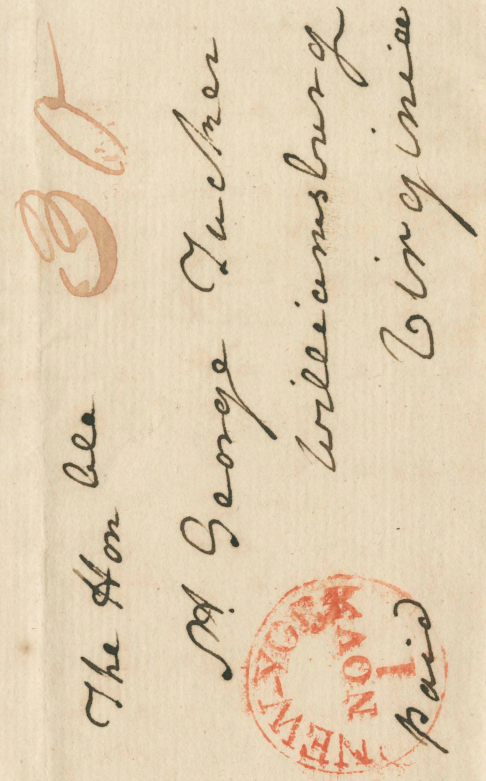 The Hon ble
St. George Tucker
Williamsburg
Virginia
paid
30
NEW-YORK
NOV
1